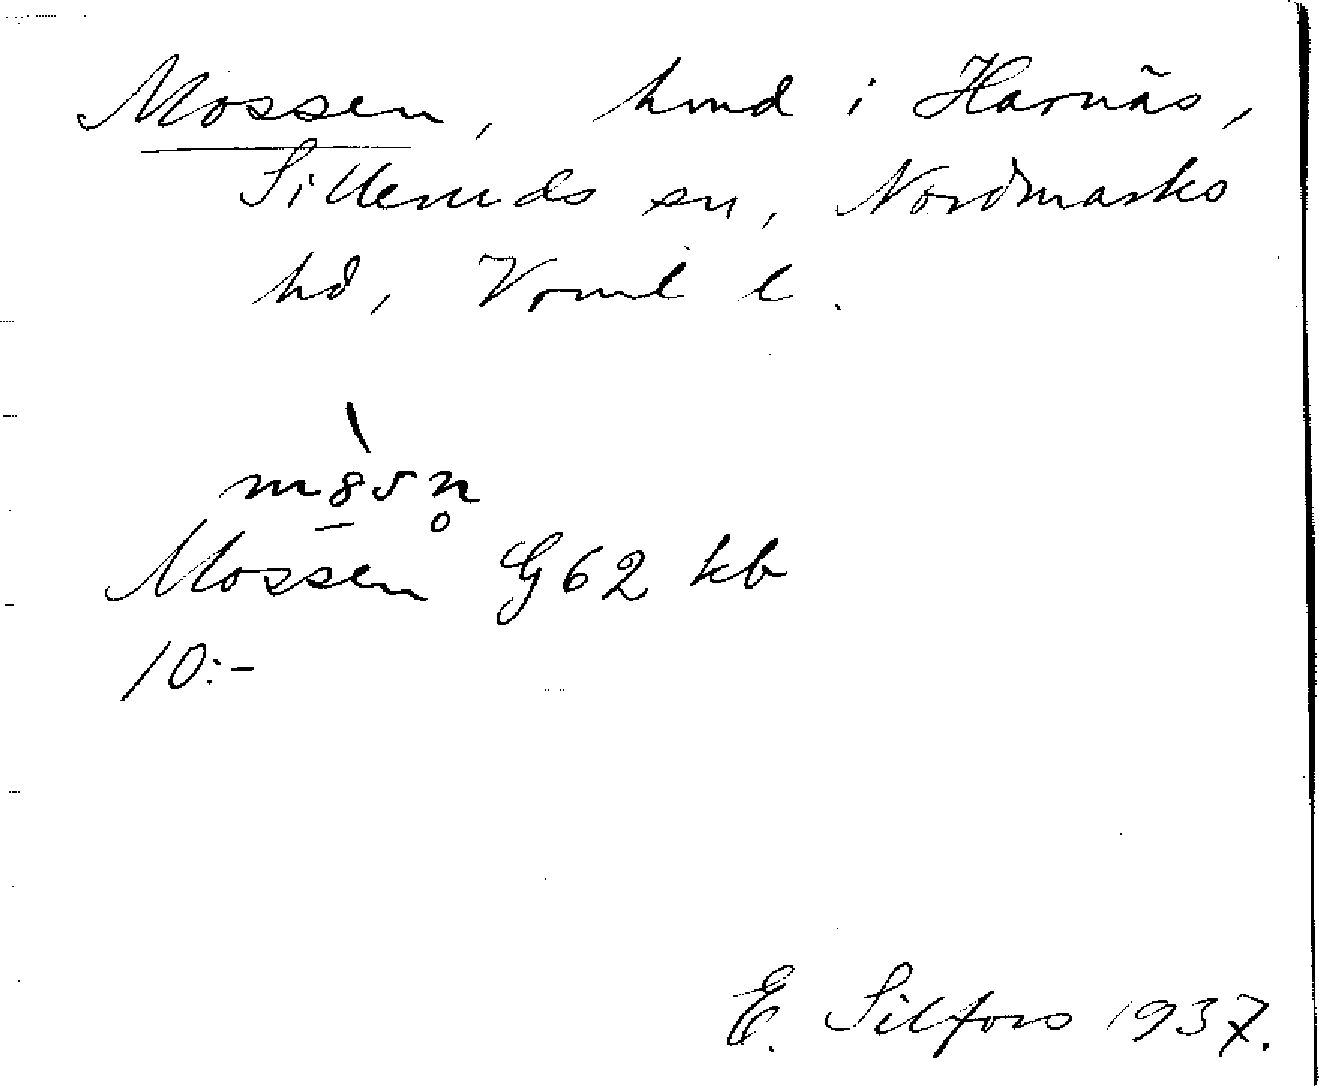 Mossen, hmd i Harnäs,
Silleruds sn, Nordmarks
hd, Vrml l.
Mossen G62 kb
10:-
E. Silfors 1937.